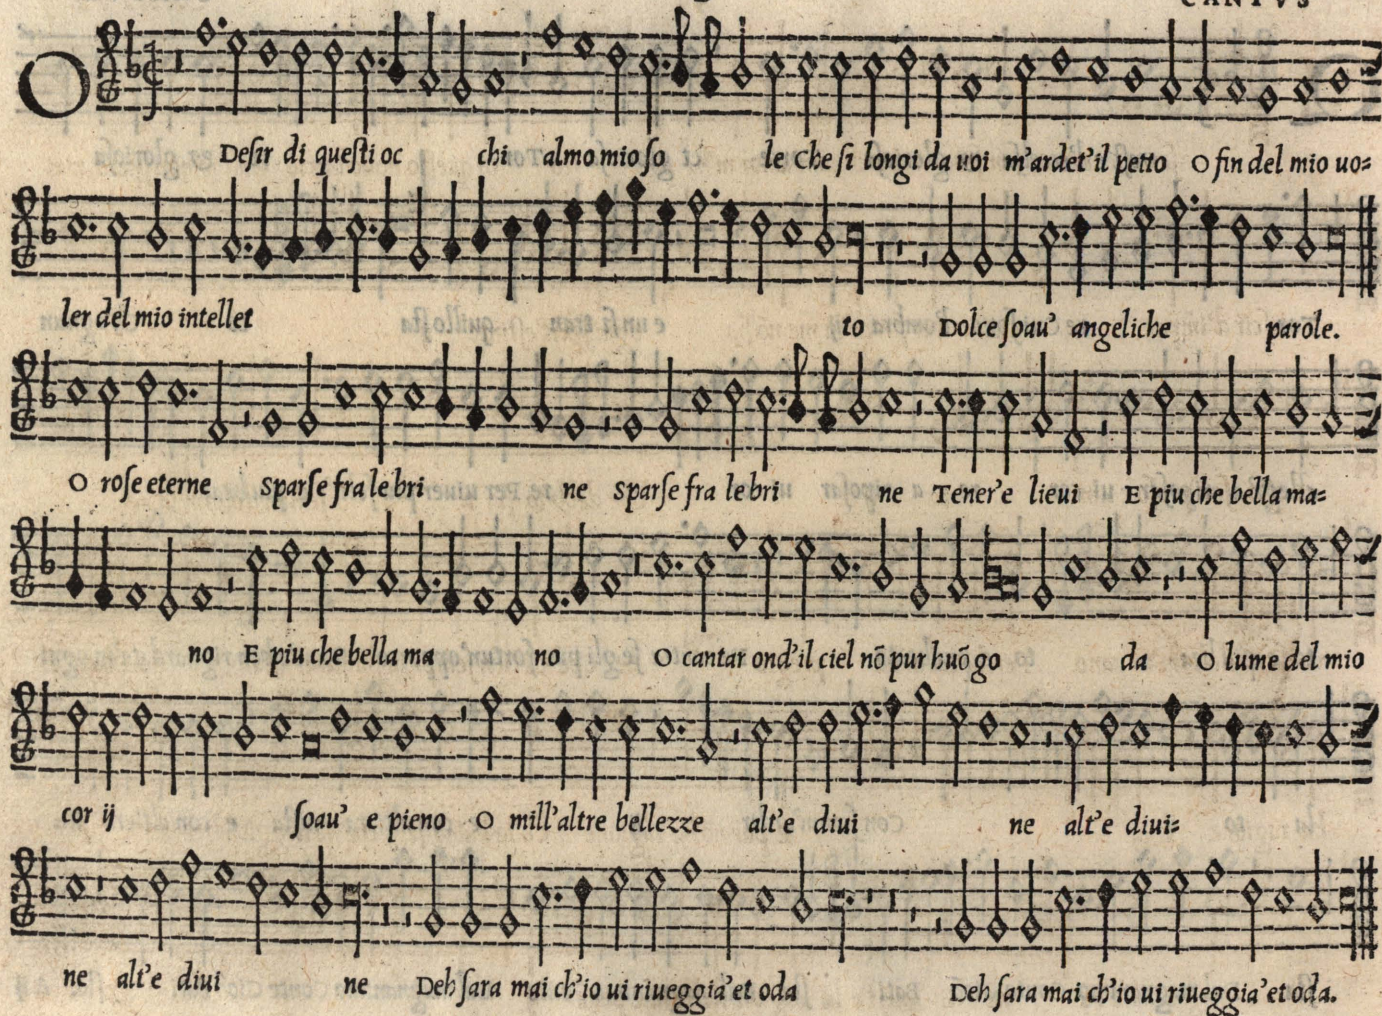 CANTVS
O Desir di questi oc chi almo mio so le Che si longi da uoi m'ardet'il petto O fin del mio uo=
ler del mio intellet to Dolce soau' angeliche parole.
O rose eterne Sparse fra le bri ne Sparse fra le bri ne Tener'e lieui E piu che bella ma=
no E piu che bella ma no O cantar ond'il ciel nō pur huō go da O lume del mio
cor ij soau' e pieno O mill'altre bellezze alt'e diui ne alt'e diui=
ne alt'e diui ne Deh sara mai ch'io ui riueggia'et oda Deh sara mai ch'io ui riueggia'et oda.